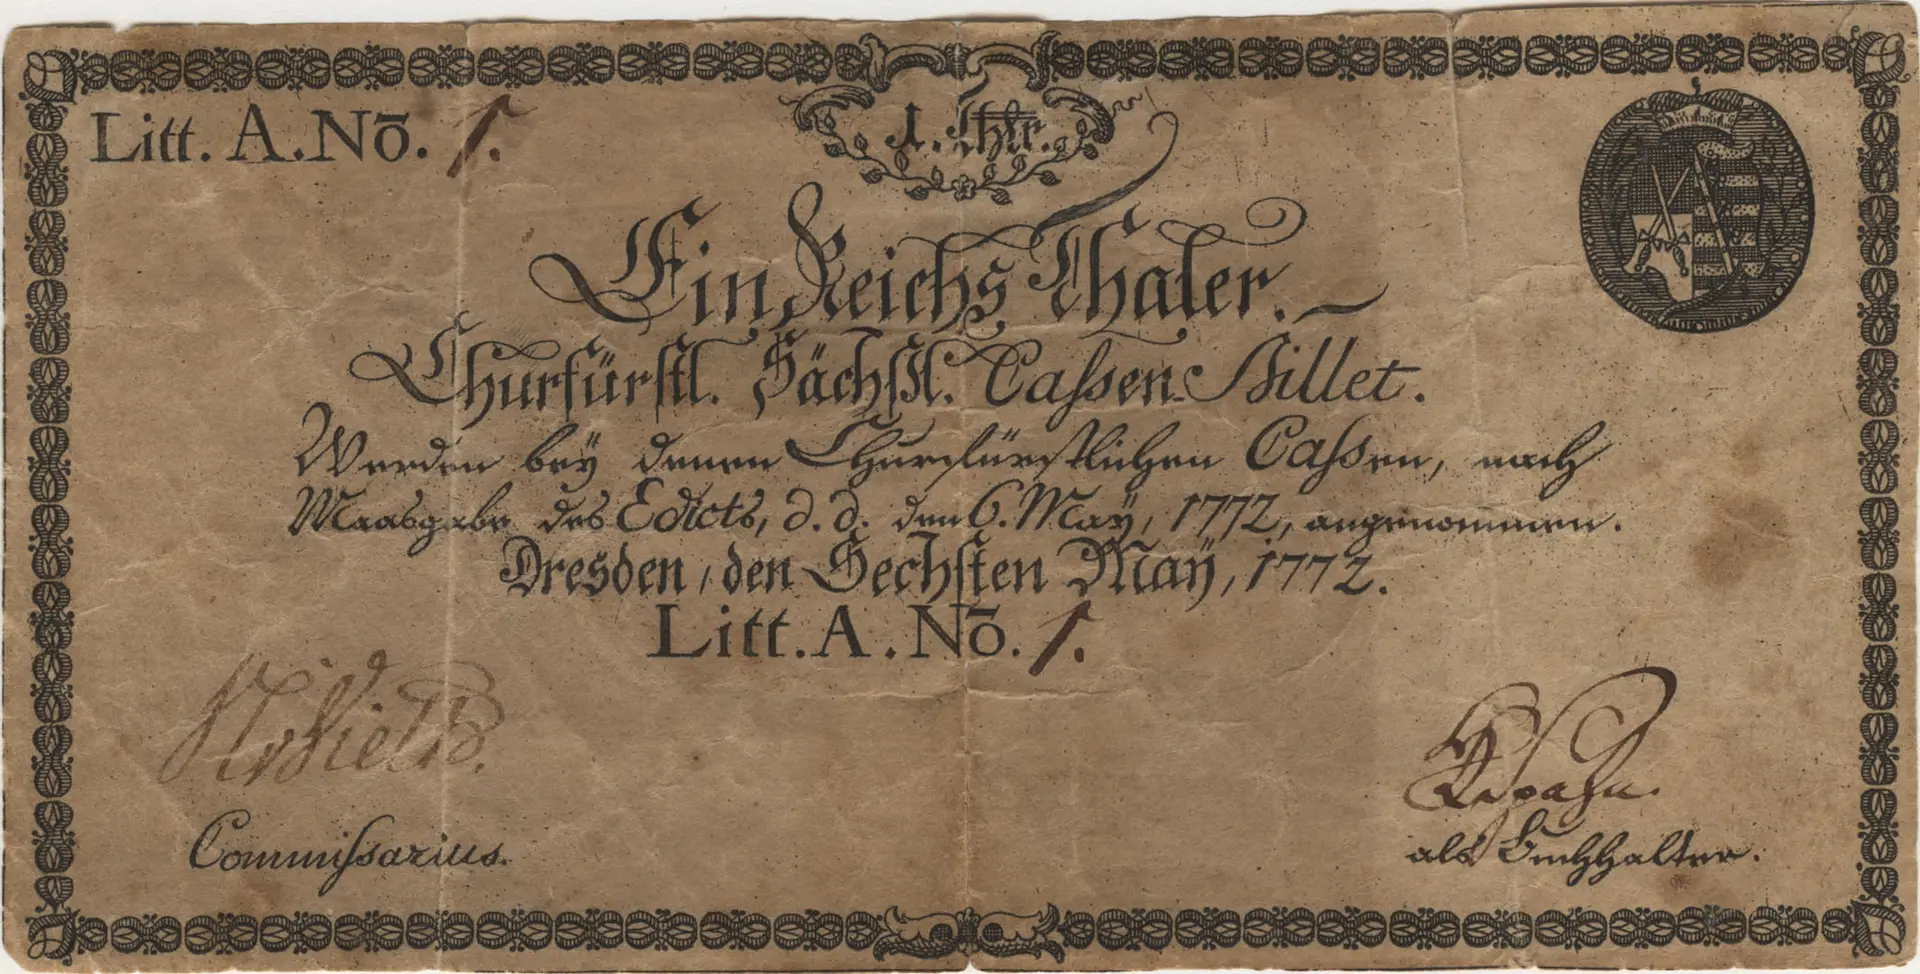 Litt. A. Nō. 1.
1. Thlr.
Ein Reichs Thaler.
Churfürstl. Sächßl. Cassen-Billet.
Werden bey denen Churfürstlichen Cassen, nach
Maasgabe des Edicts, d. d. den 6. May, 1772, angenommen.
Dresden, den Sechsten May, 1772.
Litt. A. Nō. 1.
Commissarius.
als Buchhalter.